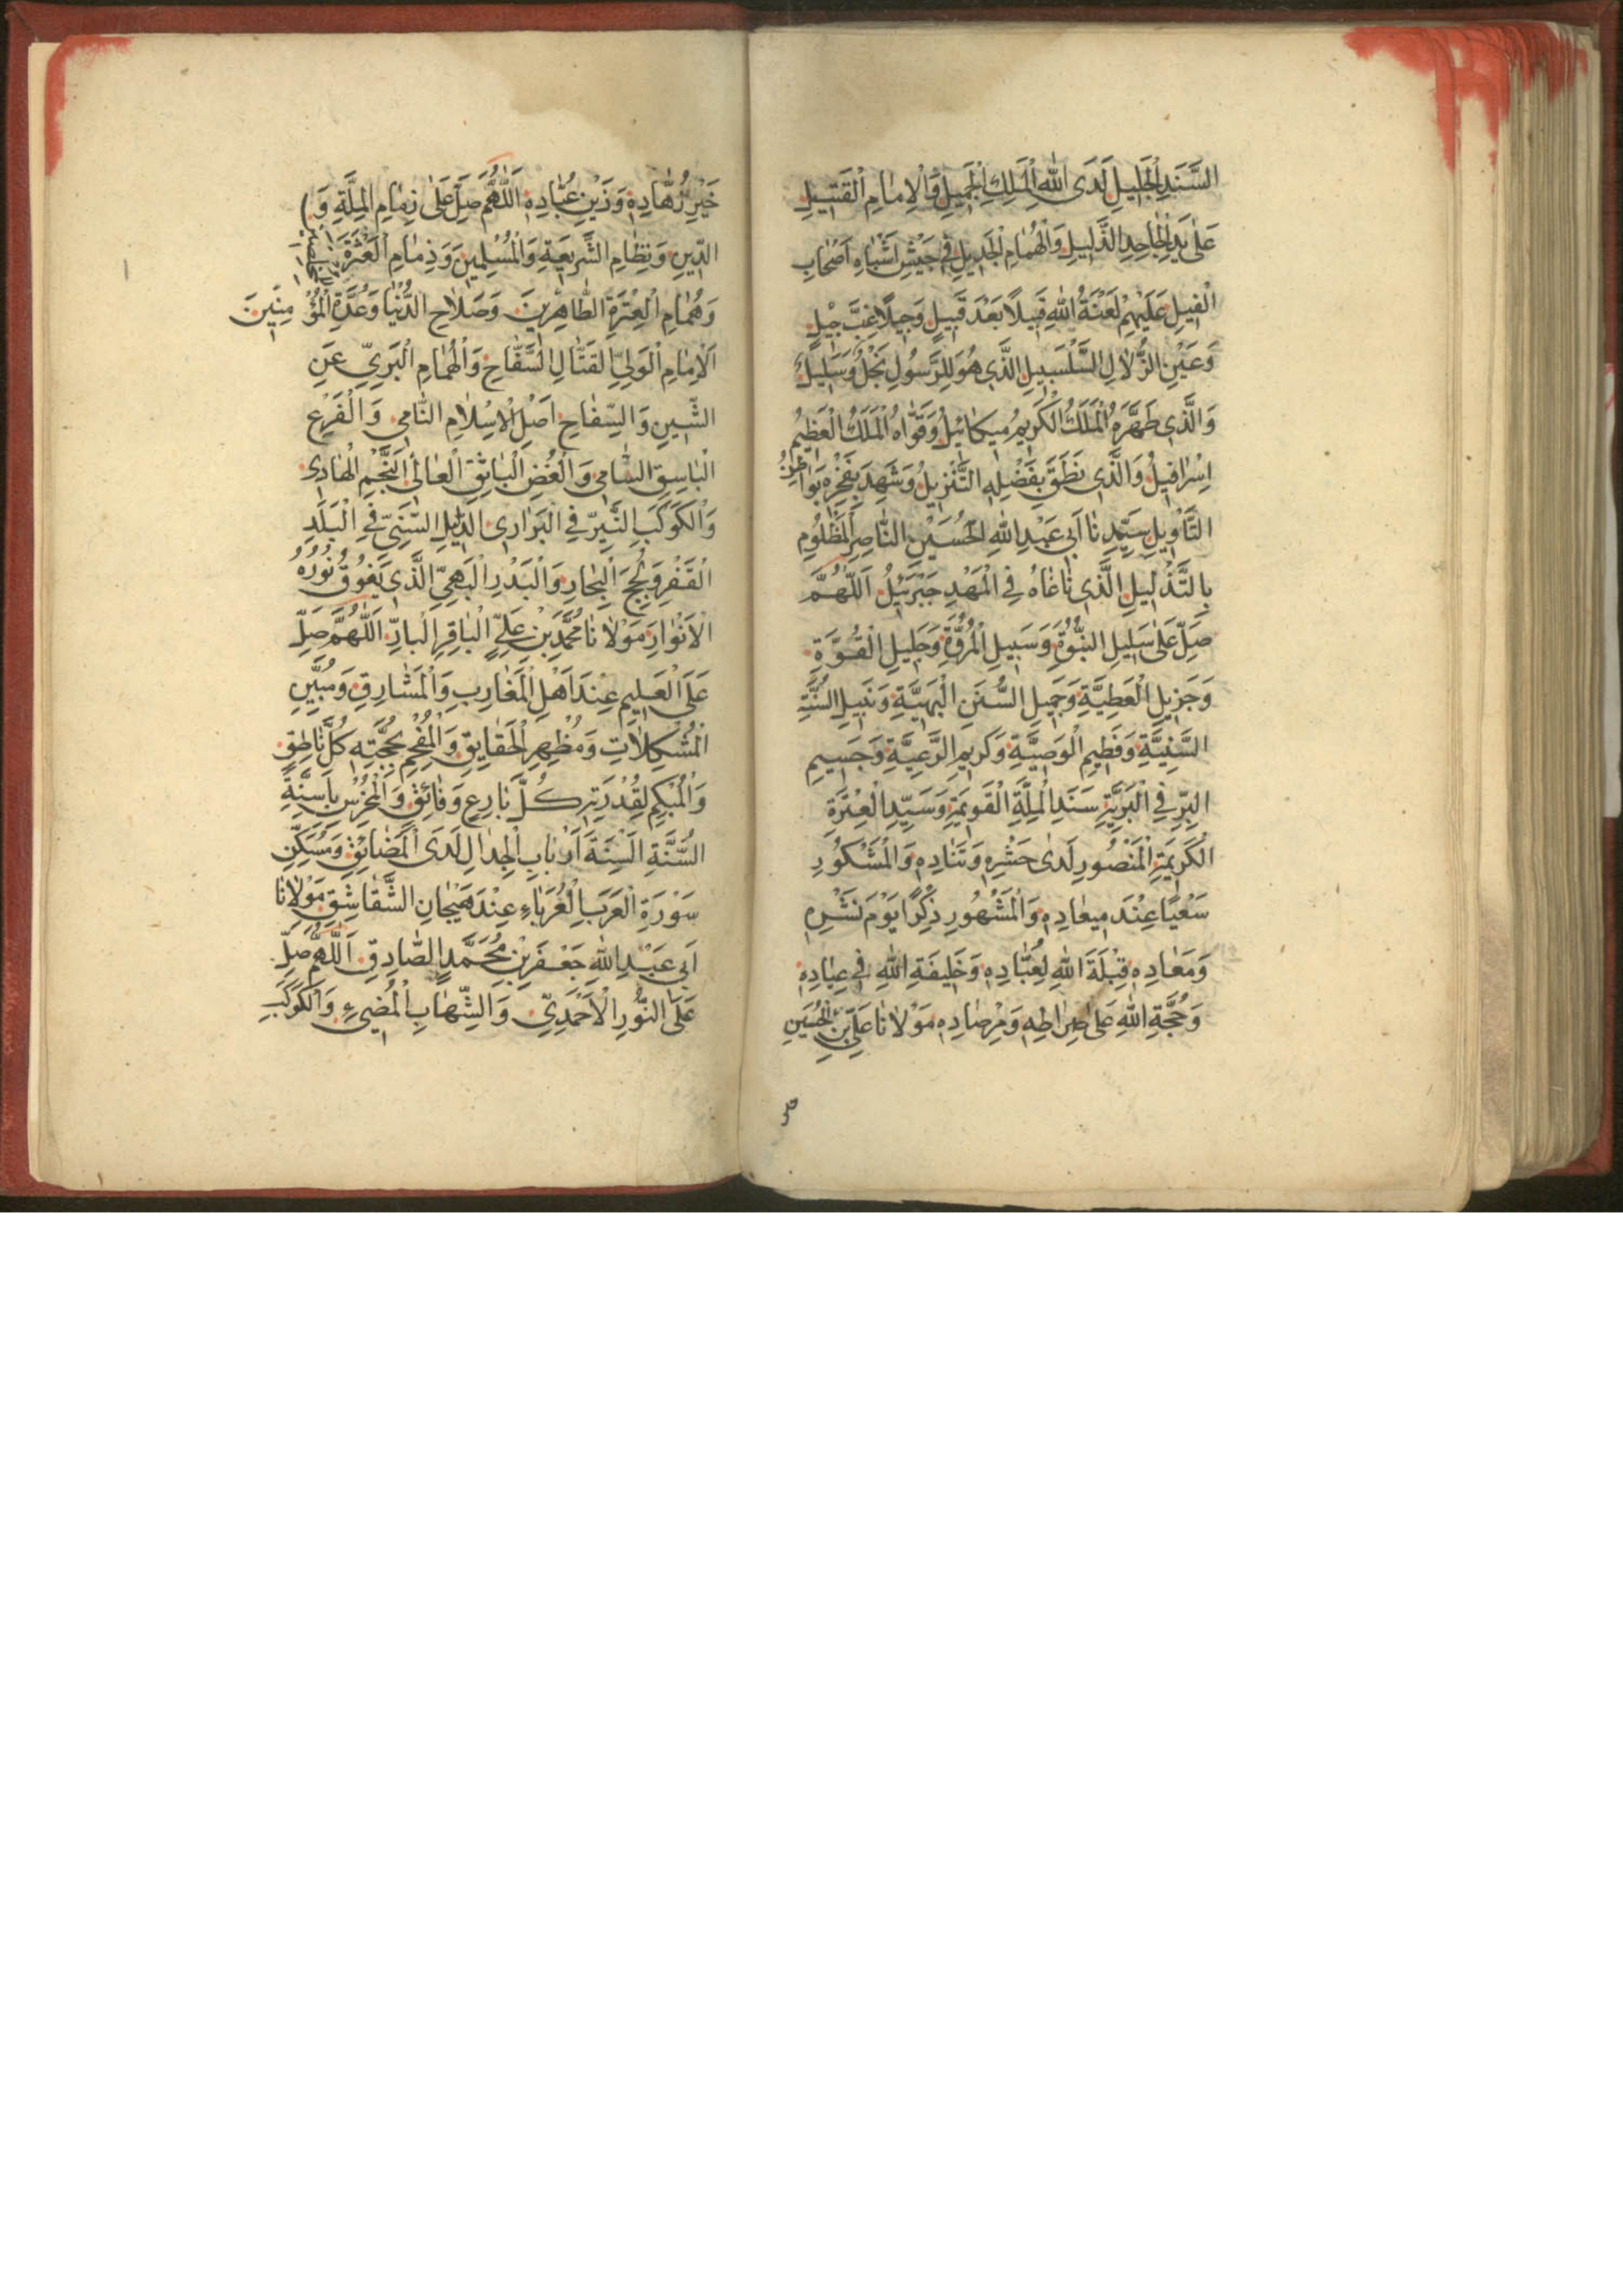 السَّنَدِ الْجَلِيلِ لَدَى اللهِ الْمَلِكِ الْجَمِيلِ وَالْاِمَامِ الْقَتِيلِ
عَلٰى يَدِ الْجَاحِدِ الذَّلِيلِ وَالْهُمَامِ الْجَدِيلِ فِي جَيْشِ اَشْبَاهِ اَصْحَابِ
الْفِيلِ عَلَيْهِمْ لَعْنَةُ اللهِ قَبِيلًا بَعْدَ قَبِيلٍ وَجِيلًا غِبَّ جِيلٍ
وَعَيْنِ الزُّلَالِ السَّلْسَبِيلِ الَّذِي هُوَ لِلرَّسُولِ نَجْلٌ وَسَلِيلٌ
وَالَّذِي طَهَّرَهُ الْمَلَكُ الْكَرِيمُ مِيكَائِيلُ وَقَوَّاهُ الْمَلَكُ الْعَظِيمُ
اِسْرَافِيلُ وَالَّذِي نَطَقَ بِفَضْلِهِ التَّنْزِيلُ وَشَهِدَ بِفَخْرِهِ
التَّاْوِيلِ سَيِّدِنَا اَبِي عَبْدِ اللهِ الْحُسَيْنِ النَّاصِرِ الْمَظْلُومِ
بِالتَّذْلِيلِ الَّذِي نَاغَاهُ فِي الْمَهْدِ جَبْرَئِيلُ اَللّٰهُمَّ
صَلِّ عَلٰى سَلِيلِ النُّبُوَّةِ وَسَبِيلِ الْمُرُوَّةِ وَجَلِيلِ الْقُوَّةِ
وَجَزِيلِ الْعَطِيَّةِ وَجَمِيلِ السُّنَنِ الْبَهِيَّةِ وَنَبِيلِ السُّنَّةِ
السَّنِيَّةِ وَفَطِيمِ الْوَصِيَّةِ وَكَرِيمِ الرَّعِيَّةِ وَجَسِيمِ
الْبِرِّ فِي الْبَرِيَّةِ سَنَدِ الْمِلَّةِ الْقَوِيمَةِ وَسَيِّدِ الْعِتْرَةِ
الْكَرِيمَةِ الْمَنْصُورِ لَدٰى حَشْرِهِ وَتَنَادِهِ وَالْمَشْكُورِ
سَعْيًا عِنْدَ مِيعَادِهِ وَالْمَشْهُورِ ذِكْرًا يَوْمَ نَشْرِهِ
وَمَعَادِهِ قِبْلَةَ اللهِ لِعُبَّادِهِ وَخَلِيفَةِ اللهِ فِي عِبَادِهِ
وَحُجَّةِ اللهِ عَلٰى صِرَاطِهِ وَمِرْصَادِهِ مَوْلَانَا عَلِيِّ بْنِ الْحُسَيْنِ
خَيْرِ زُهَّادِهِ وَزَيْنِ عُبَّادِهِ اَللّٰهُمَّ صَلِّ عَلٰى زِمَامِ الْمِلَّةِ وَ
الدِّينِ وَنِظَامِ الشَّرِيعَةِ وَالْمُسْلِمِينَ وَذِمَامِ الْعَثْرَةِ
وَهُمَامِ الْعِتْرَةِ الطَّاهِرِينَ وَصَلَاحِ الدُّنْيَا وَعُدَّةِ الْمُؤْمِنِينَ
اَلْاِمَامِ الْوَلِيِّ الْقَتَّالِ السَّفَّاحِ وَالْهُمَامِ الْبَرِيِّ عَنِ
الشَّيْنِ وَالسِّفَاحِ اَصْلِ الْاِسْلَامِ النَّامِي وَالْفَرْعِ
الْبَاسِقِ السَّامِي وَالْغُصْنِ الْبَاثِقِ الْعَالِي النَّجْمِ الْهَادِي
وَالْكَوْكَبِ النَّيِّرِ فِي الْبَوَارِي الدَّلِيلِ السَّنِيِّ فِي الْبَلَدِ
الْقَفْرِ وَلُجَجِ الْبِحَارِ وَالْبَدْرِ الْبَهِيِّ الَّذِي يَفُوقُ نُورُهُ
الْاَنْوَارَ مَوْلَانَا مُحَمَّدِ بْنِ عَلِيٍّ الْبَاقِرِ الْبَارِّ اَللّٰهُمَّ صَلِّ
عَلَى الْعَلِيمِ عِنْدَ اَهْلِ الْمَغَارِبِ وَالْمَشَارِقِ وَمُبَيِّنِ
الْمُشْكِلَاتِ وَمُظْهِرِ الْحَقَايِقِ وَالْمُفْحِمِ بِحُجَّتِهِ كُلَّ نَاطِقٍ
وَالْمُبْكِمِ لِقُدْرَتِهِ كُلَّ بَارِعٍ وَفَائِقٍ وَالْمُخْرِسِ بِاَسِنَّةِ
السُّنَّةِ اَلْسِنَةَ اَرْبَابِ الْجِدَالِ لَدَى الْمَضَائِقِ وَمُسَكِّنِ
سَوْرَةِ الْعَرَبِ الْعُرَبَاءِ عِنْدَ هَيْجَانِ الشَّقَاشِقِ مَوْلَانَا
اَبِي عَبْدِ اللهِ جَعْفَرِ بْنِ مُحَمَّدٍ الصَّادِقِ اَللّٰهُمَّ صَلِّ
عَلَى النُّورِ الْاَحْمَدِيِّ وَالشِّهَابِ الْمُضِيءِ وَالْكَوْكَبِ